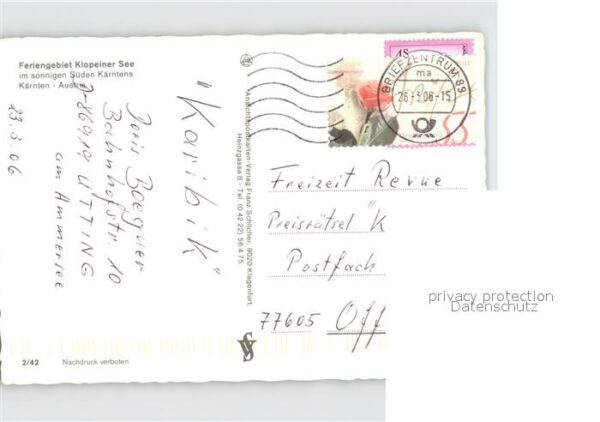 Feriengebiet Klopeiner See
im sonnigen Süden Kärntens
Kärnten · Aust
23.3.06
"Karibik"
Doris Boegner
Bahnhofstr. 10
D-86919 UTTING
am Ammersee
2/42
Nachdruck verboten
Ansichtspostkarten-Verlag Franz Schilcher, 9020 Klagenfurt,
Heinzgasse 8 - Tel. (0 42 22) 56 4 75
BRIEFZENTRUM 89
ma
26.-3.06-15
55
Freizeit Revue
Preisrätsel "K
Postfach
77605 Off
privacy protection
Datenschutz